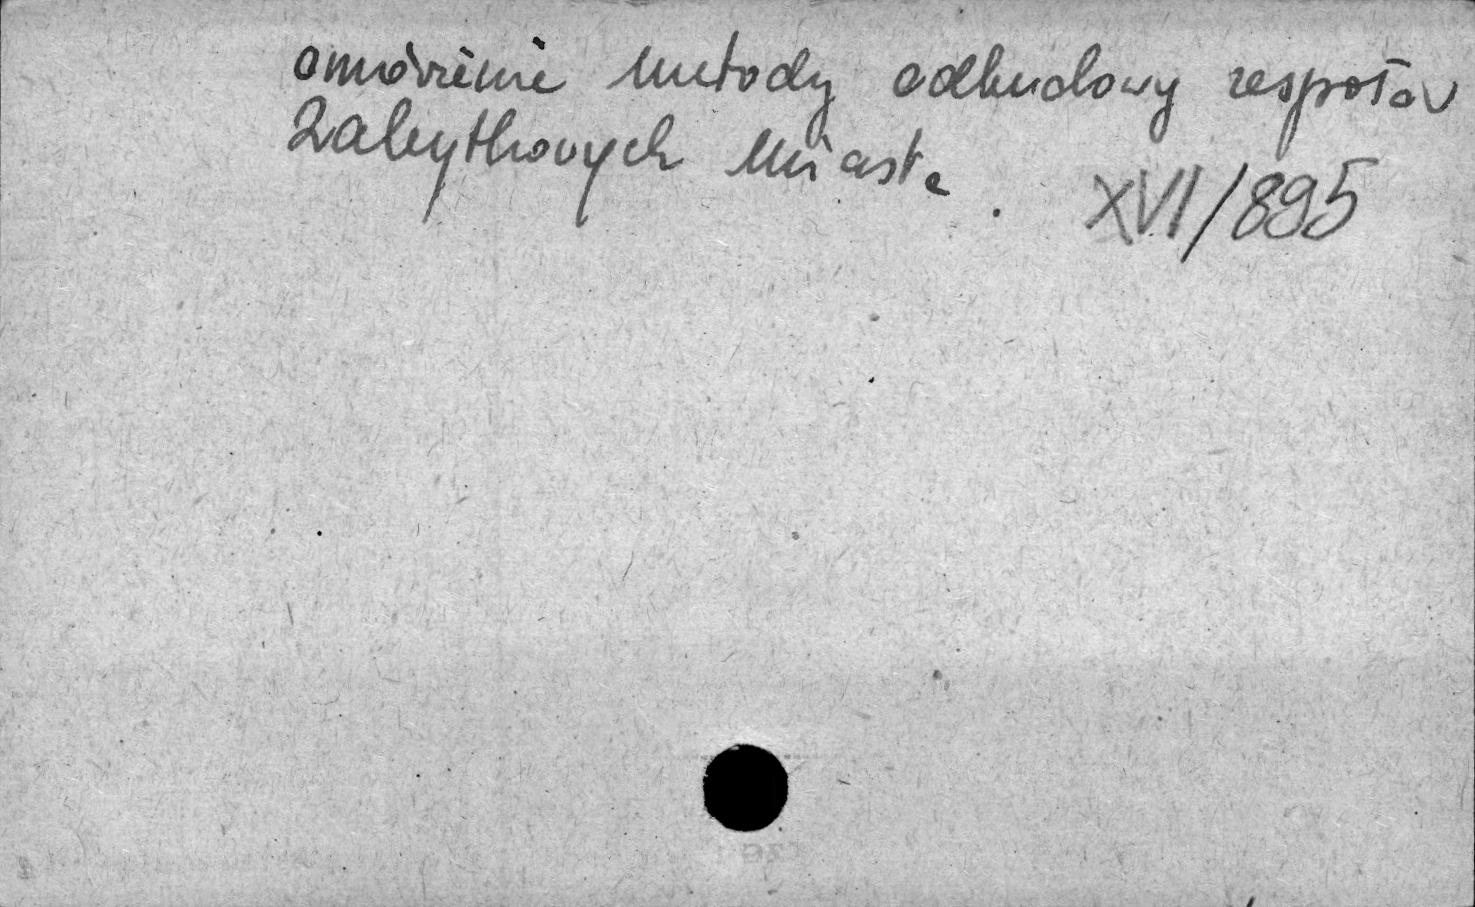 omówienie metody odbudowy zespołów
zabytkowych miasta.
XVI/895